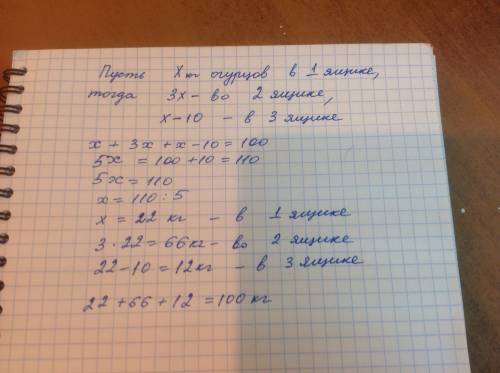 Пусть х кг огурцов в 1 ящике,
тогда 3х - во 2 ящике,
х-10 - в 3 ящике
х + 3х + х - 10 = 100
5х = 100 + 10 = 110
5х = 110
х = 110 : 5
х = 22 кг - в 1 ящике
3 · 22 = 66 кг - во 2 ящике
22 - 10 = 12 кг - в 3 ящике
22 + 66 + 12 = 100 кг